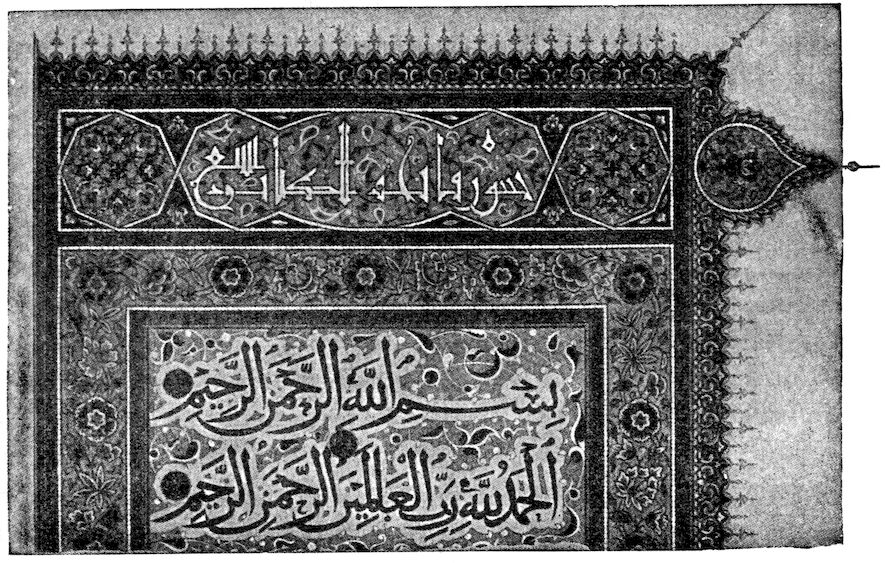 سورة فاتحة الكتاب
بِسْمِ اللَّهِ الرَّحْمَنِ الرَّحِيمِ
الْحَمْدُ لِلَّهِ رَبِّ الْعَالَمِينَ الرَّحْمَنِ الرَّحِيمِ